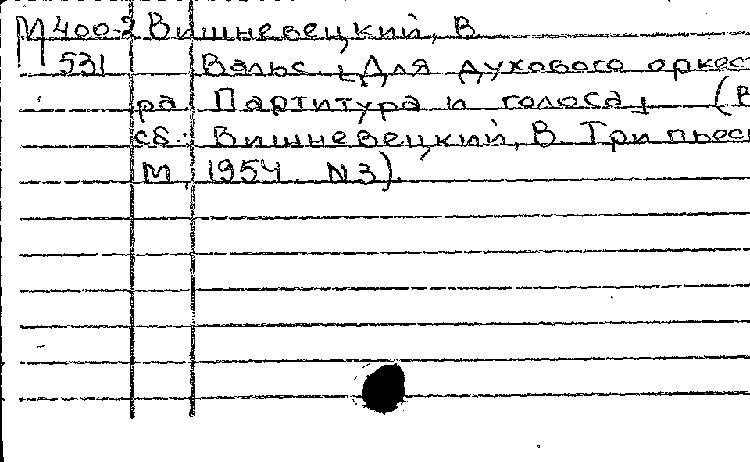 М400-2 Вишневецкий, В
М 531 Вальс [Для духового оркест
ра Партитура и голоса] (В
сб.: Вишневецкий, В. Три пьесы
М, 1954. N3).